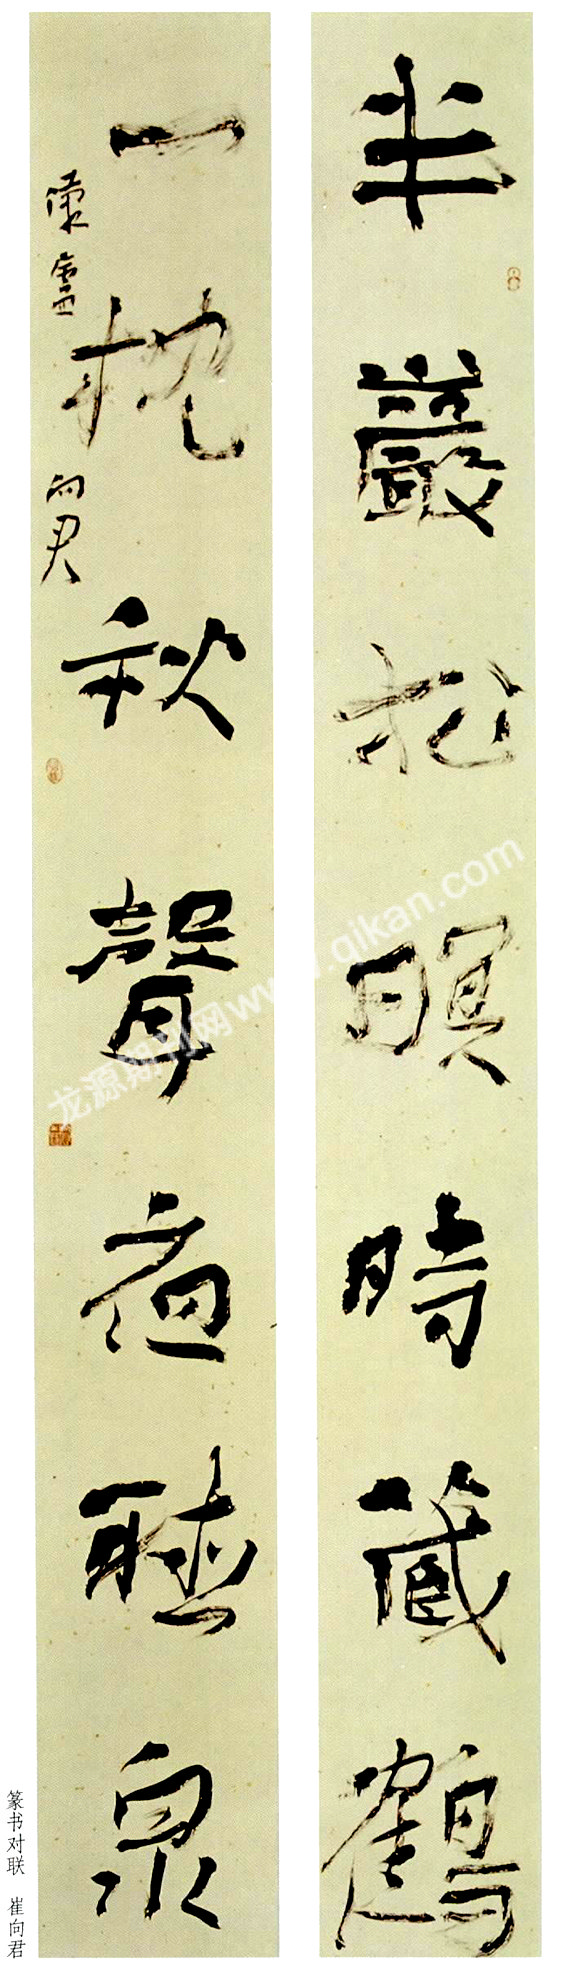 半巖松暝時藏鶴
一枕秋聲夜聽泉
廬 向君
篆书对联 崔向君
龙源期刊网www.qikan.com